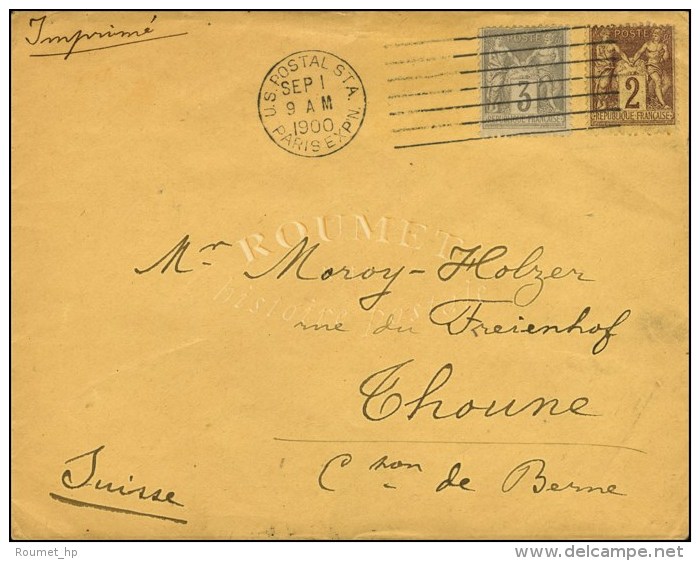 Imprimé
U.S. POSTAL STA.
SEP 1
9 A M
1900
PARIS EXP'N.
POSTE
3
REPUBLIQUE FRANÇAISE
POSTE
2
REPUBLIQUE FRANÇAISE
ROUMET
histoire postale
Mr Moroy-Holzer
rue du Freienhof
Thoune
Cton de Berne
Suisse
Roumet_hp
www.delcampe.net